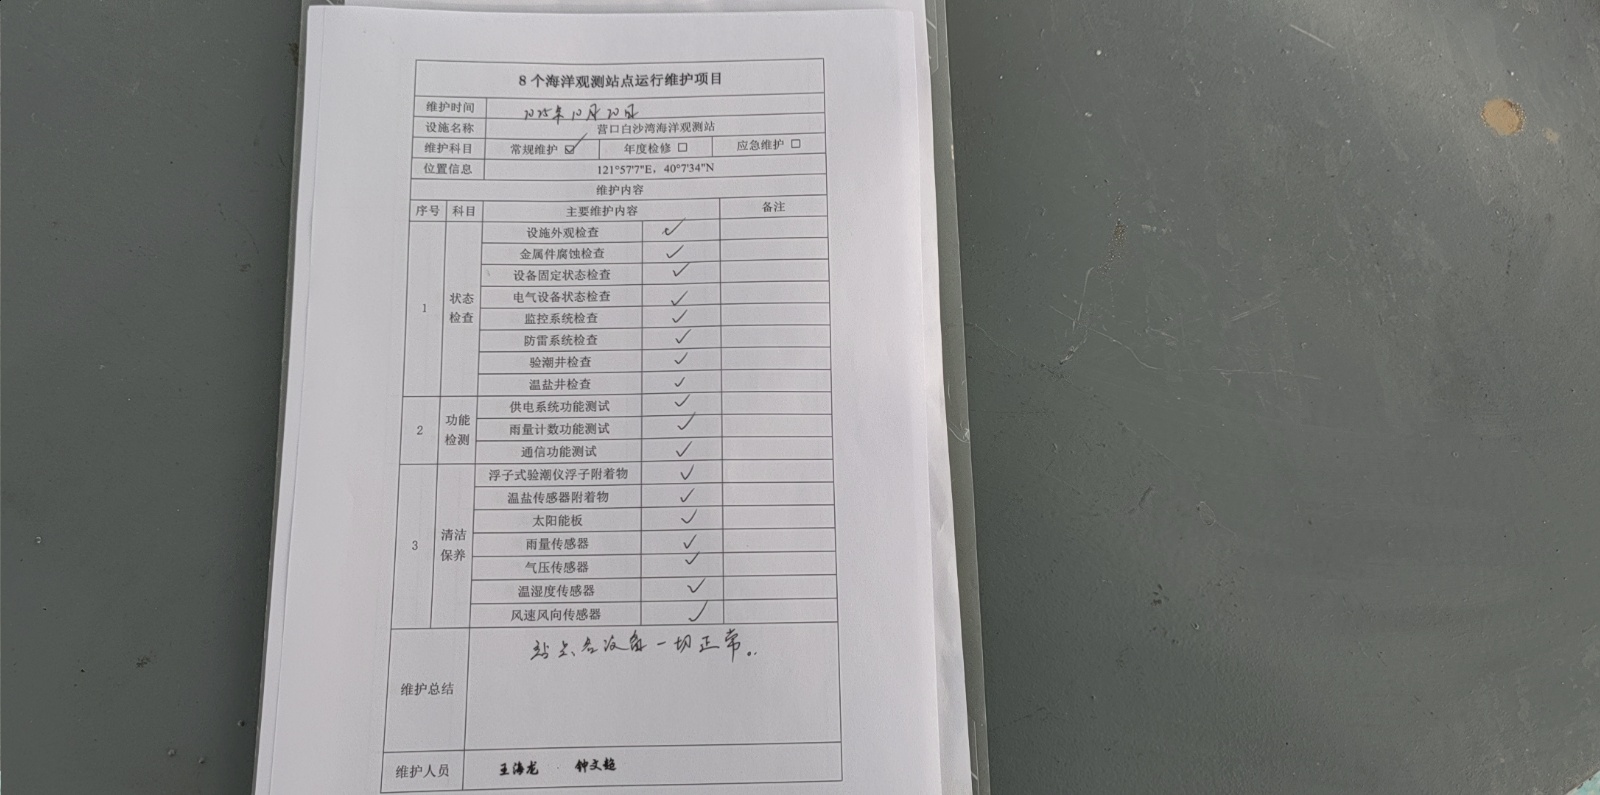 8个海洋观测站点运行维护项目
维护时间 2025年10月20日
设施名称 营口白沙湾海洋观测站
维护科目 常规维护 ☑ 年度检修 □ 应急维护 □
位置信息 121°57'7"E，40°7'34"N
维护内容
序号 科目 主要维护内容 备注
1 状态检查
设施外观检查 ✓
金属件腐蚀检查 ✓
设备固定状态检查 ✓
电气设备状态检查 ✓
监控系统检查 ✓
防雷系统检查 ✓
验潮井检查 ✓
温盐井检查 ✓
2 功能检测
供电系统功能测试 ✓
雨量计数功能测试 ✓
通信功能测试 ✓
3 清洁保养
浮子式验潮仪浮子附着物 ✓
温盐传感器附着物 ✓
太阳能板 ✓
雨量传感器 ✓
气压传感器 ✓
温湿度传感器 ✓
风速风向传感器 ✓
维护总结 站点各设备一切正常。
维护人员 王海龙 钟文超